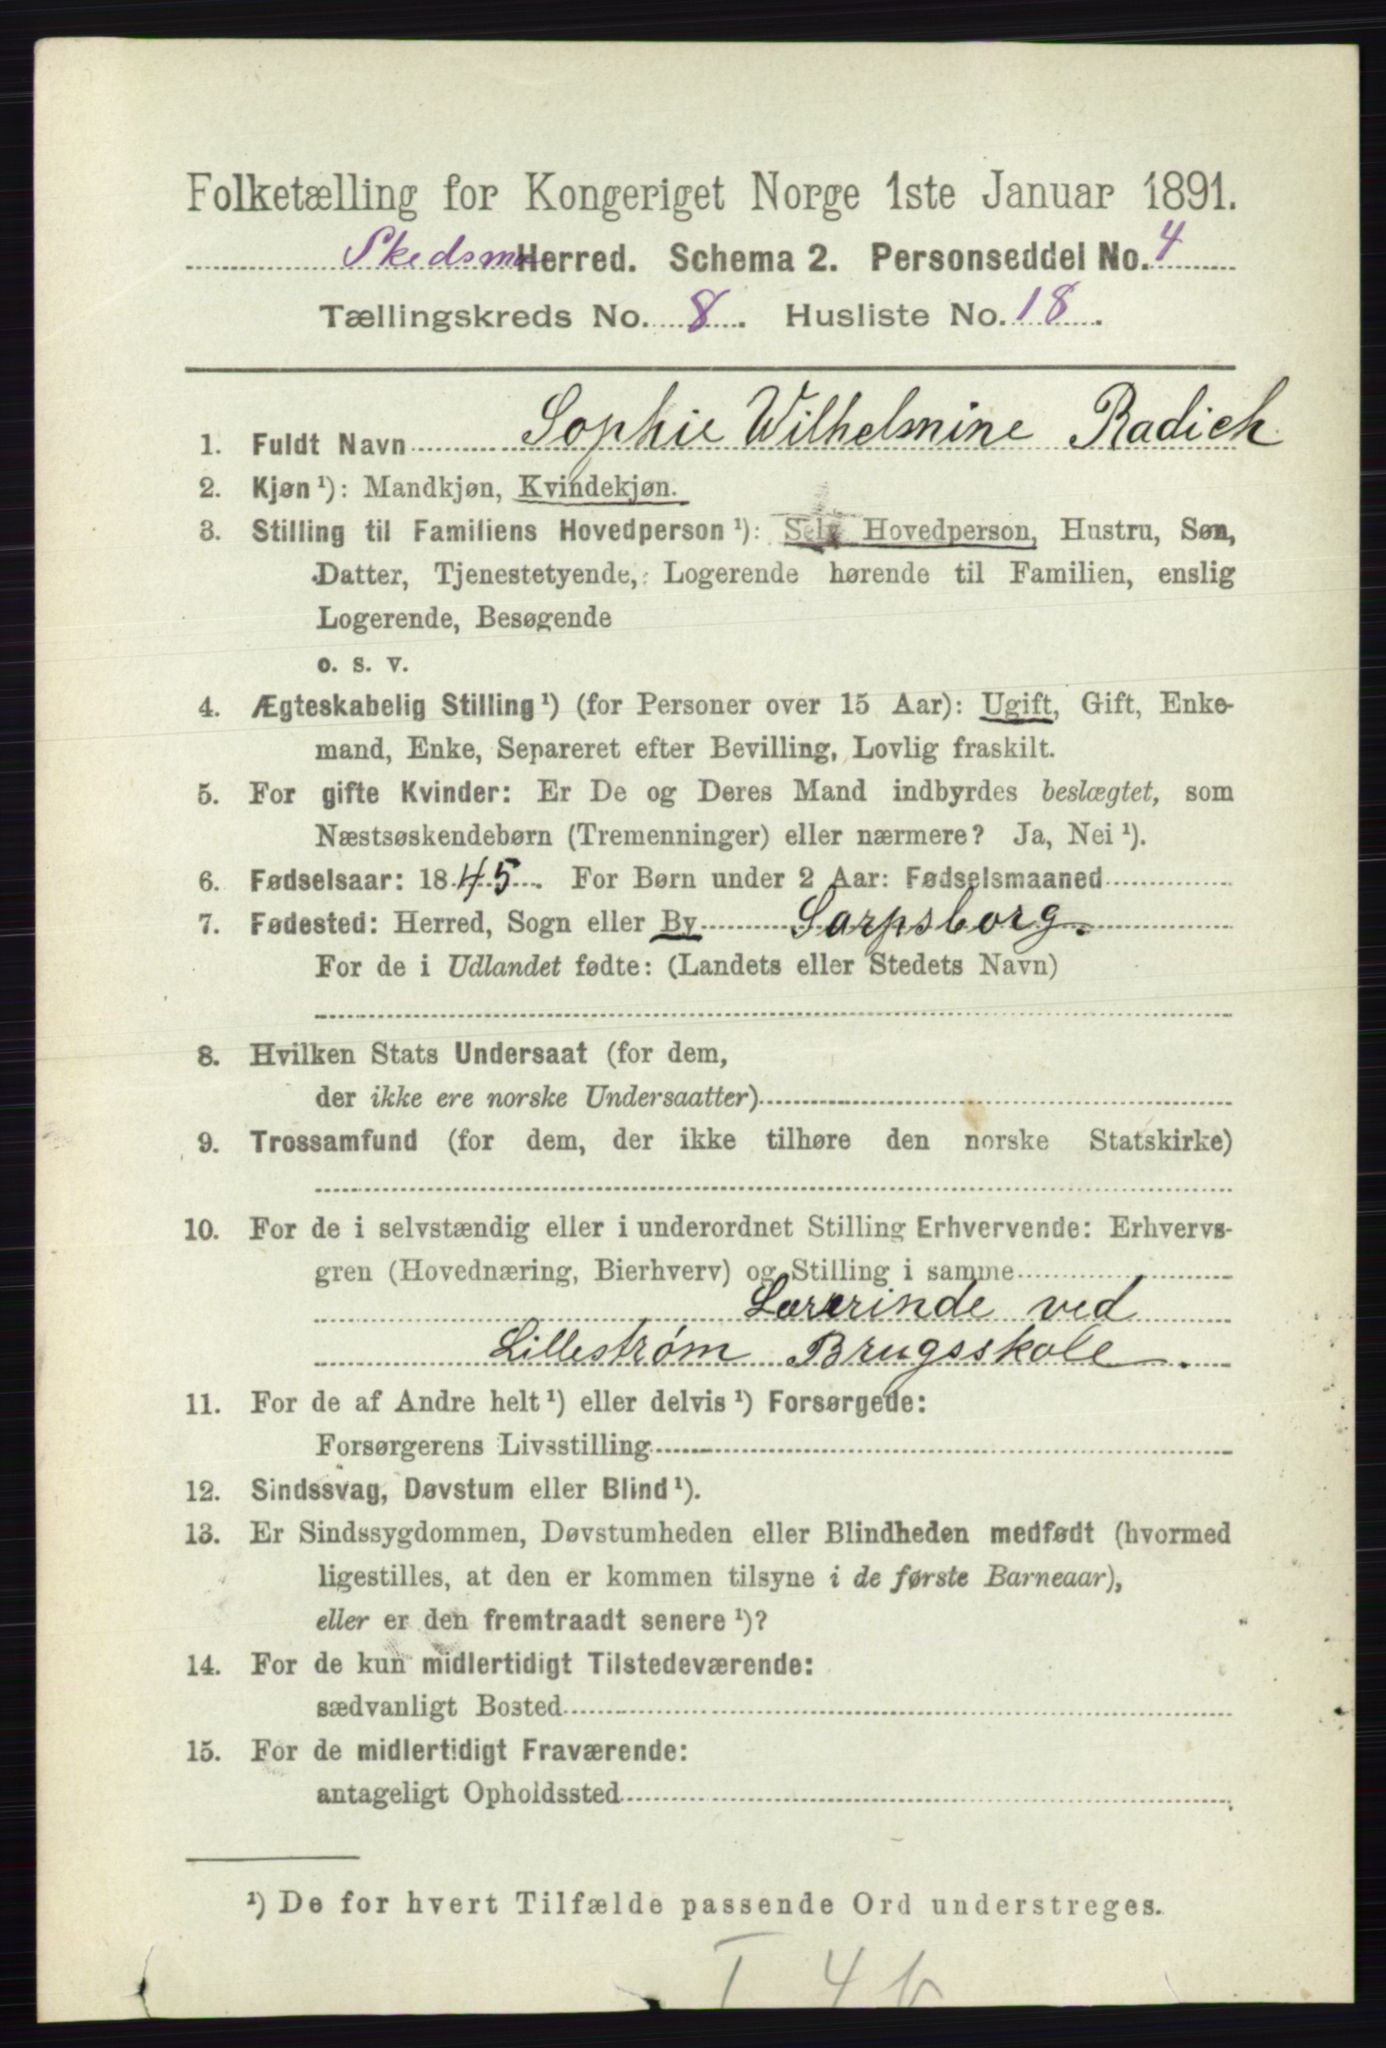 Folketælling for Kongeriget Norge 1ste Januar 1891.
Skedsmo Herred. Schema 2. Personseddel No. 4
Tællingskreds No. 8. Husliste No. 18.
1. Fuldt Navn Sophie Wilhelmine Radich
2. Kjøn ¹): Mandkjøn, Kvindekjøn.
3. Stilling til Familiens Hovedperson ¹): Selv Hovedperson, Hustru, Søn,
Datter, Tjenestetyende, Logerende hørende til Familien, enslig
Logerende, Besøgende
o. s. v.
4. Ægteskabelig Stilling ¹) (for Personer over 15 Aar): Ugift, Gift, Enke-
mand, Enke, Separeret efter Bevilling, Lovlig fraskilt.
5. For gifte Kvinder: Er De og Deres Mand indbyrdes beslægtet, som
Næstsøskendebørn (Tremenninger) eller nærmere? Ja, Nei ¹).
6. Fødselsaar: 1845. For Børn under 2 Aar: Fødselsmaaned
7. Fødested: Herred, Sogn eller By Sarpsborg.
For de i Udlandet fødte: (Landets eller Stedets Navn)
8. Hvilken Stats Undersaat (for dem,
der ikke ere norske Undersaatter)
9. Trossamfund (for dem, der ikke tilhøre den norske Statskirke)
10. For de i selvstændig eller i underordnet Stilling Erhvervende: Erhvervs-
gren (Hovednæring, Bierhverv) og Stilling i samme
Lærerinde ved
Lillestrøm Brugsskole.
11. For de af Andre helt ¹) eller delvis ¹) Forsørgede:
Forsørgerens Livsstilling
12. Sindssvag, Døvstum eller Blind ¹).
13. Er Sindssygdommen, Døvstumheden eller Blindheden medfødt (hvormed
ligestilles, at den er kommen tilsyne i de første Barneaar),
eller er den fremtraadt senere ¹)?
14. For de kun midlertidigt Tilstedeværende:
sædvanligt Bosted
15. For de midlertidigt Fraværende:
antageligt Opholdssted
¹) De for hvert Tilfælde passende Ord understreges.
I 4 b